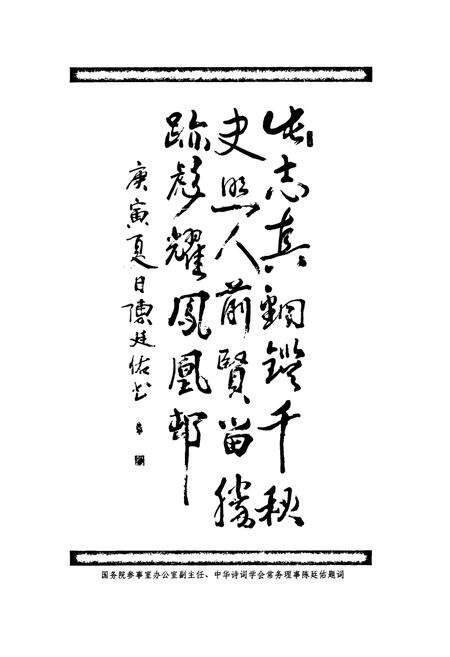 此志真銅鑑千秋
史照人前賢留勝
跡彩耀鳳凰邨
庚寅夏日陳廷佑书
国务院参事室办公室副主任、中华诗词学会常务理事陈廷佑题词